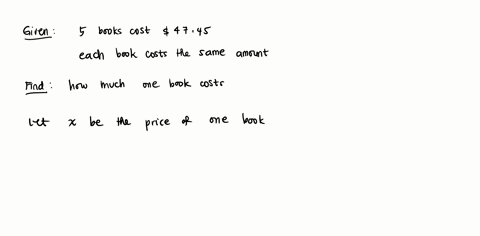 Given: 5 books cost $47.45
each book costs the same amount
Find: how much one book costs
Let x be the price of one book